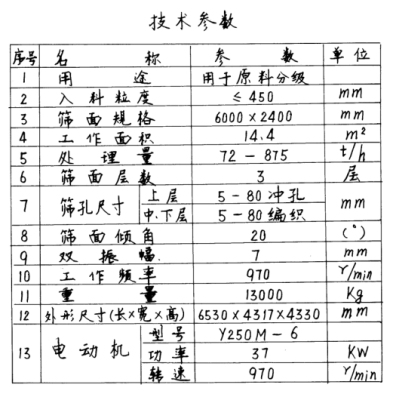 技术参数
序号 名 称 参 数 单位
1 用 途 用于原料分级
2 入料粒度 ≤450 mm
3 筛面规格 6000×2400 mm
4 工作面积 14.4 m²
5 处理量 72-875 t/h
6 筛面层数 3 层
7 筛孔尺寸 上层 5-80冲孔 mm
中.下层 5-80编织
8 筛面倾角 20 (°)
9 双振幅. 7 mm
10 工作频率 970 r/min
11 重 量 13000 Kg
12 外形尺寸(长×宽×高) 6530×4317×4330 mm
13 电动机 型号 Y250M-6
功率 37 KW
转速 970 r/min